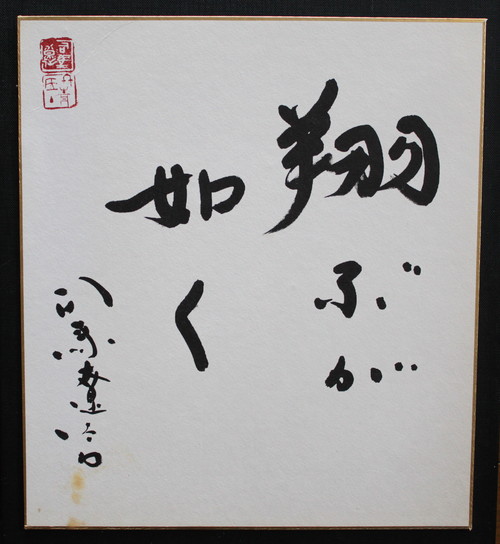 翔ぶが
如く
司馬遼太郎